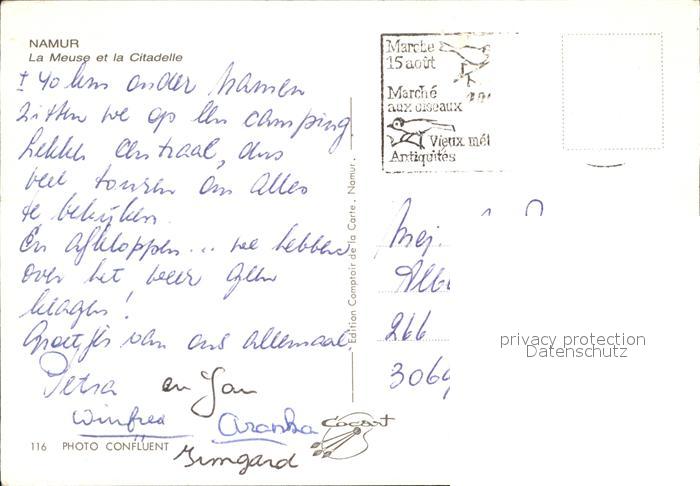 NAMUR
La Meuse et la Citadelle
± 40 km onder Namen
zitten we op een camping
Lekker centraal, dus
veel touren om alles
te bekijken.
En afkloppen... we hebben
over het weer geen
klagen!
Groetjes van ons allemaal.
Petra en Jan
Winfred Aranka
Irmgard
116 PHOTO CONFLUENT
Edition Comptoir de la Carte, Namur.
Marche
15 août
Marché
aux oiseaux
Vieux mét
Antiquités
Mej.
Albe
266
3069
privacy protection
Datenschutz